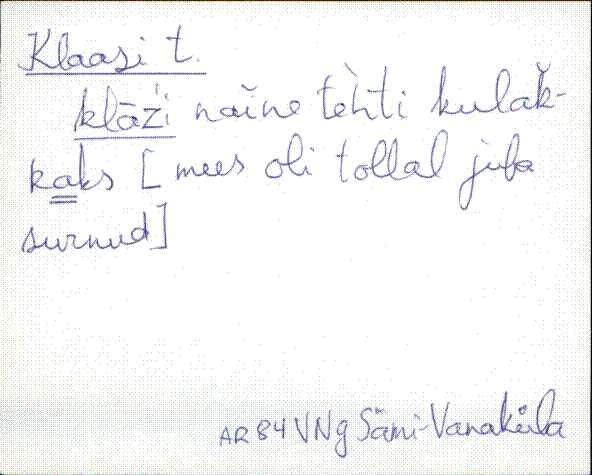 Klaasi t.
klāźi naĭne tèhti kulak̆-
kaks [mees oli tollal juba
surnud]
AR 84 VNg Sämi-Vanaküla